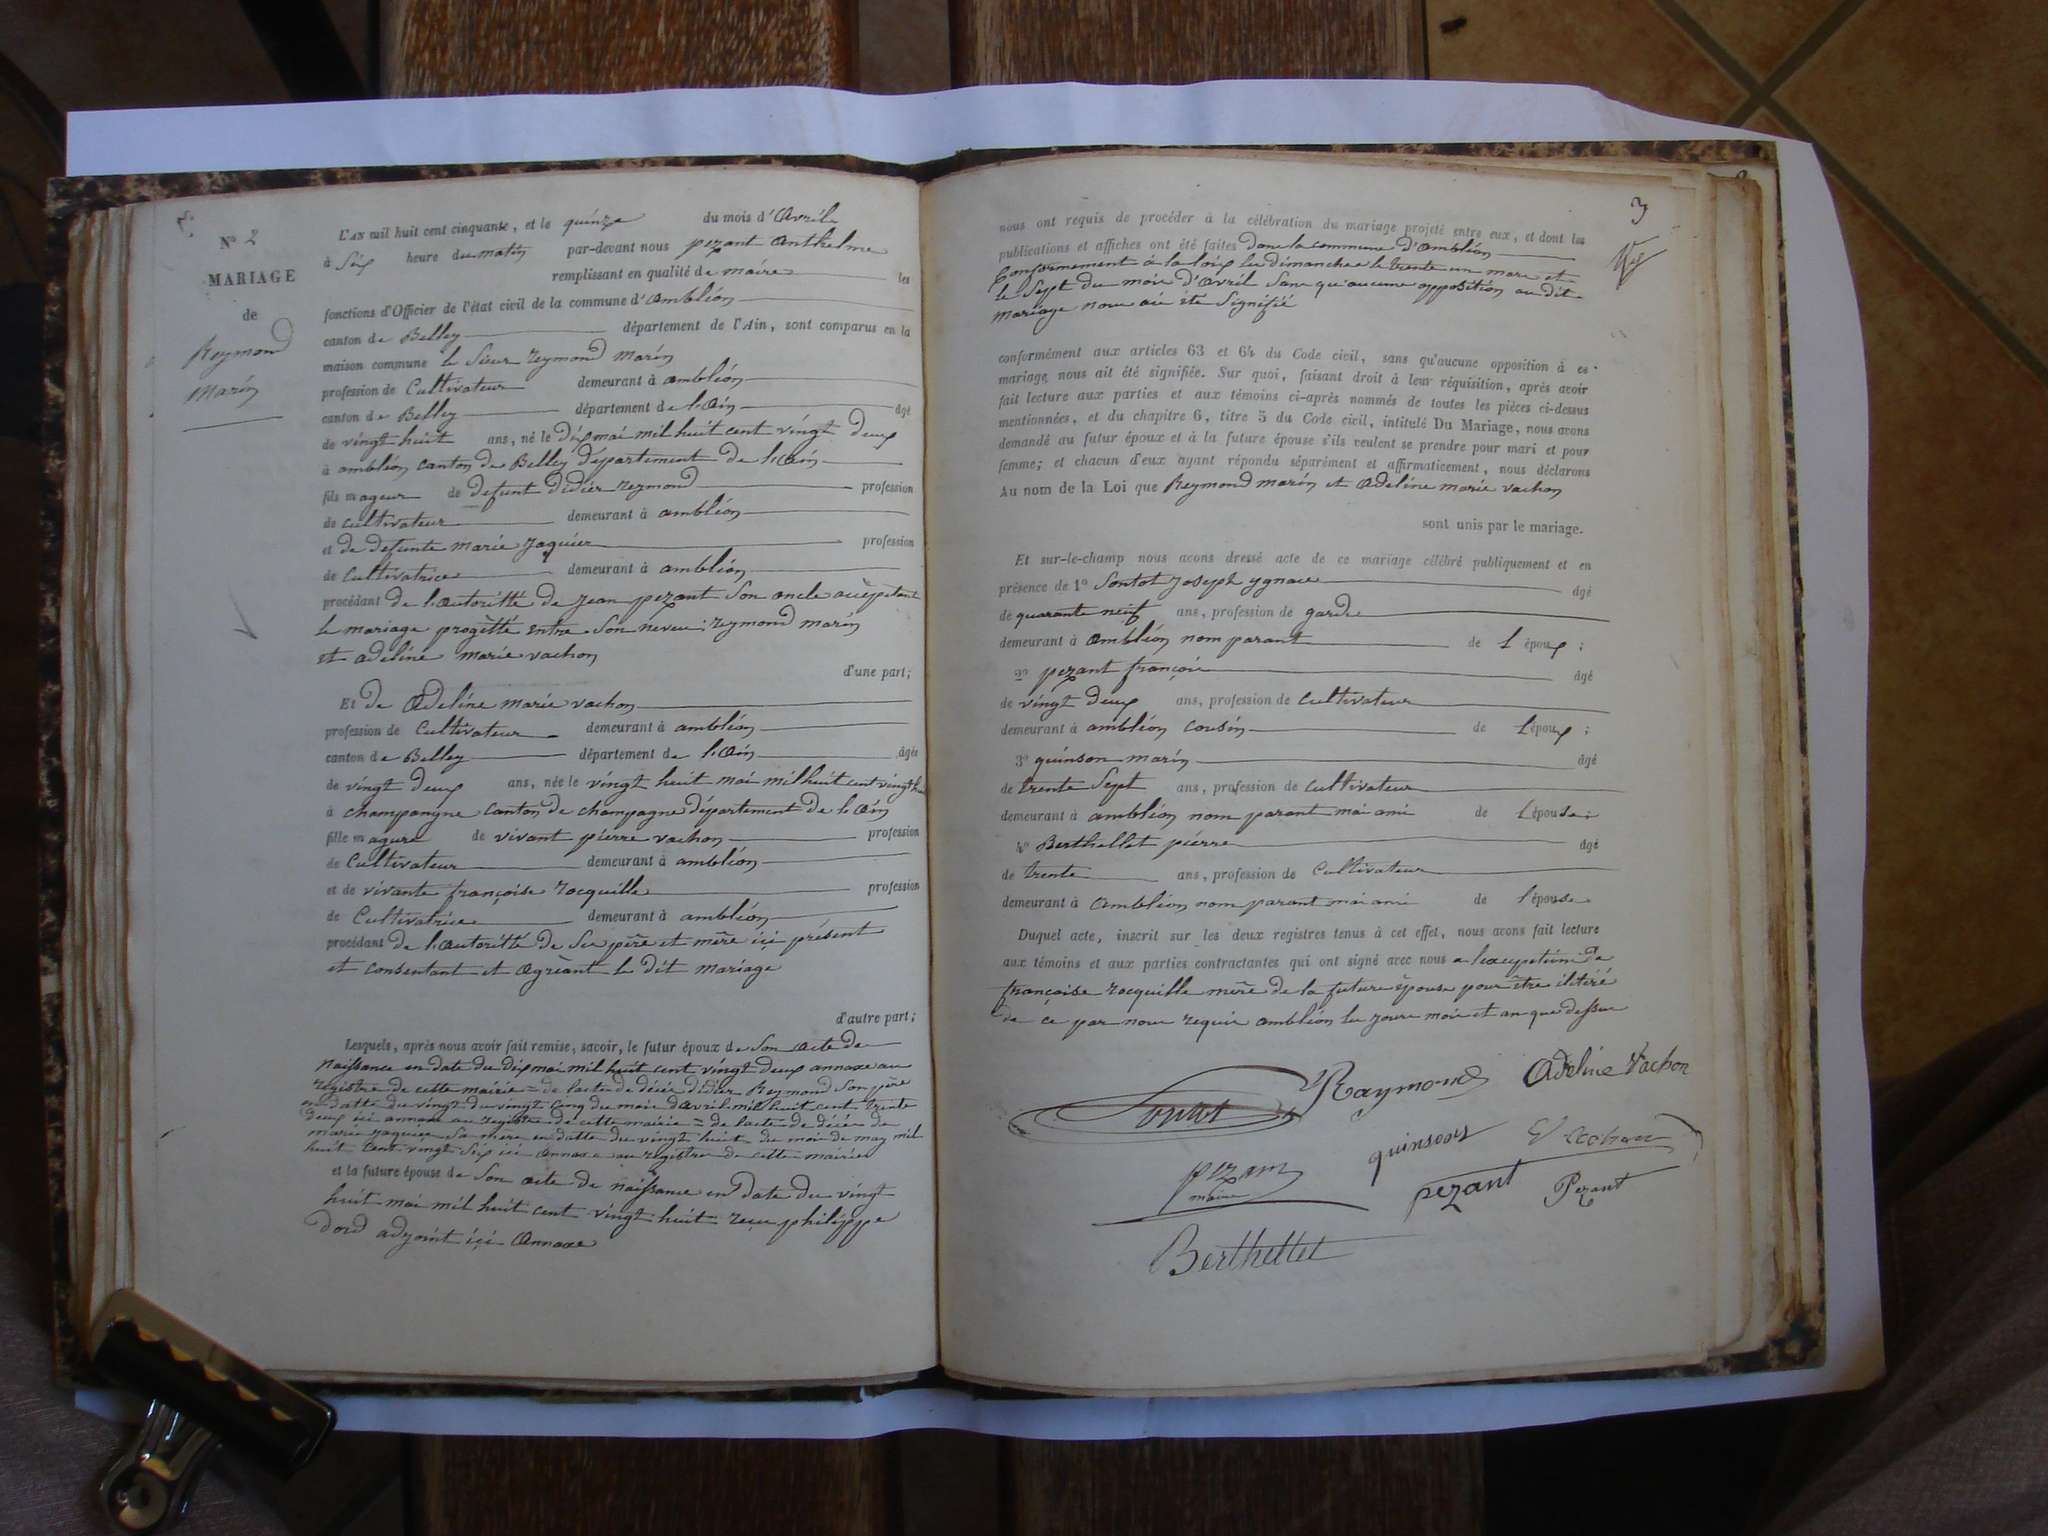 N° 2
MARIAGE
de
Reymond
Marin
L'AN mil huit cent cinquante, et le quinze du mois d'Avrile
à Six heure du matin par-devant nous pezant anthelme
remplissant en qualité de maire les
fonctions d'Officier de l'état civil de la commune d'ambléon
canton de Belley département de l'Ain, sont comparus en la
maison commune le Sieur reymond marin
profession de Cultivateur demeurant à ambléon
canton de Belley département de l'ain âgé
de vingt huit ans, né le dix mai mil huit cent vingt deux
à ambléon canton de Belley département de l'ain
fils mageur de defunt didier reymond profession
de cultivateur demeurant à ambléon
et de defunte marie jaquier profession
de Cultivatrice demeurant à ambléon
procédant de l'autoritté de jean pezant Son oncle acceptant
le mariage progètté entre Son neveu reymond marin
et adeline marie vachon
d'une part;
Et de Adeline marie vachon
profession de Cultivateur demeurant à amblèon
canton de Belley département de l'ain âgée
de vingt deux ans, née le vingt huit mai mil huit cent vingt huit
à champangne canton de champagne département de l'ain
fille magure de vivant pierre vachon profession
de Cultivateur demeurant à amblèon
et de vivante françoise rocquille profession
de Cultivatrice demeurant à amblèon
procédant de l'autoritté de Ses père et mère içi présent
et consentant et agrèant le dit mariage
d'autre part;
Lesquels, après nous avoir fait remise, savoir, le futur époux de Son acte de
naissance en date du dix mai mil huit cent vingt deux annaxe au
registre de cette mairie = de l'acte de décée didier Reymond Son père
en datte du vingt du vingt cinq du mois d'avril mil huit cent trente
deux ici annaxe au registre de cette mairie = de l'acte de décée de
marie jaquier Sa mère en datte du vingt huit du mois de may mil
huit cent vingt Six ici annaxe au registre de cette mairie
et la future épouse de Son acte de naissance en date du vingt
huit mai mil huit cent vingt huit reçu philippe
dord adjoint içi annaxe
3
nous ont requis de procéder à la célébration du mariage projeté entre eux, et dont les
publications et affiches ont été faites dans la commune d'amblèon
Conformement à la loix les dimanches le trente un mars et
le Sept du mois d'Avril Sans qu'aucune opposition au dit
mariage nous ai ètè Signifié
conformément aux articles 63 et 64 du Code civil, sans qu'aucune opposition à ce
mariage nous ait été signifiée. Sur quoi, faisant droit à leur réquisition, après avoir
fait lecture aux parties et aux témoins ci-après nommés de toutes les pièces ci-dessus
mentionnées, et du chapitre 6, titre 5 du Code civil, intitulé Du Mariage, nous avons
demandé au futur époux et à la future épouse s'ils veulent se prendre pour mari et pour
femme; et chacun d'eux ayant répondu séparément et affirmativement, nous déclarons
Au nom de la Loi que Reymond marin et Adeline marie vachon
sont unis par le mariage.
Et sur-le-champ nous avons dressé acte de ce mariage célébré publiquement et en
présence de 1° Sontot Joseph ygnace âgé
de quarante neuf ans, profession de garde
demeurant à amblèon nom parant de l époux ;
2° pezant françois âgé
de vingt deux ans, profession de cultivateur
demeurant à amblèon cousin de l époux ;
3° quinson marin âgé
de trente Sept ans, profession de cultivateur
demeurant à amblèon nom parant mai ami de l épouse ;
4° Berthellet pierre âgé
de trente ans, profession de Cultivateur
demeurant à Amblèon nom parant mai ami de l'épouse
Duquel acte, inscrit sur les deux registres tenus à cet effet, nous avons fait lecture
aux témoins et aux parties contractantes qui ont signé avec nous a l'exeption de
françoise rocquille mère de la future èpouse pour être iliteré
de ce par nous requis amblèon les jours mois et an que dessus
Sontot Raymond Adeline Vachon
quinson Vachon
pezant
maire
pezant Pezant
Berthellet